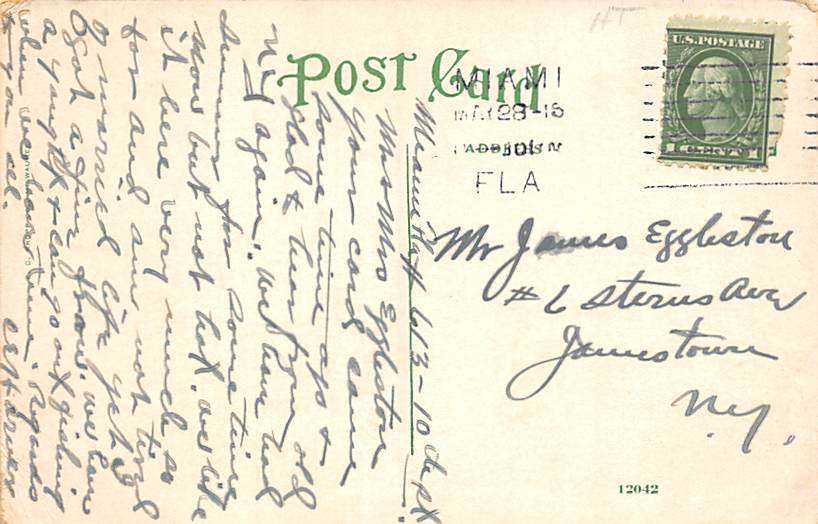 POST CARD
U.S. POSTAGE
MIAMI
MAY 28-16
FLA
Mr James Eggleston
# 6 Sterns Ave
Jamestown
N.Y.
12042
Miami Fla 613-10th St
Mr & Mrs Eggleston
your card came
some time ago &
glad to hear from old
N.Y again. We have had
summer for some time
now but not hot. we like
it here very much so
far and am not tired
of married life yet. I
got a fine from. we have
a yacht & can go out fishing
when we have time. Regards
to you all.